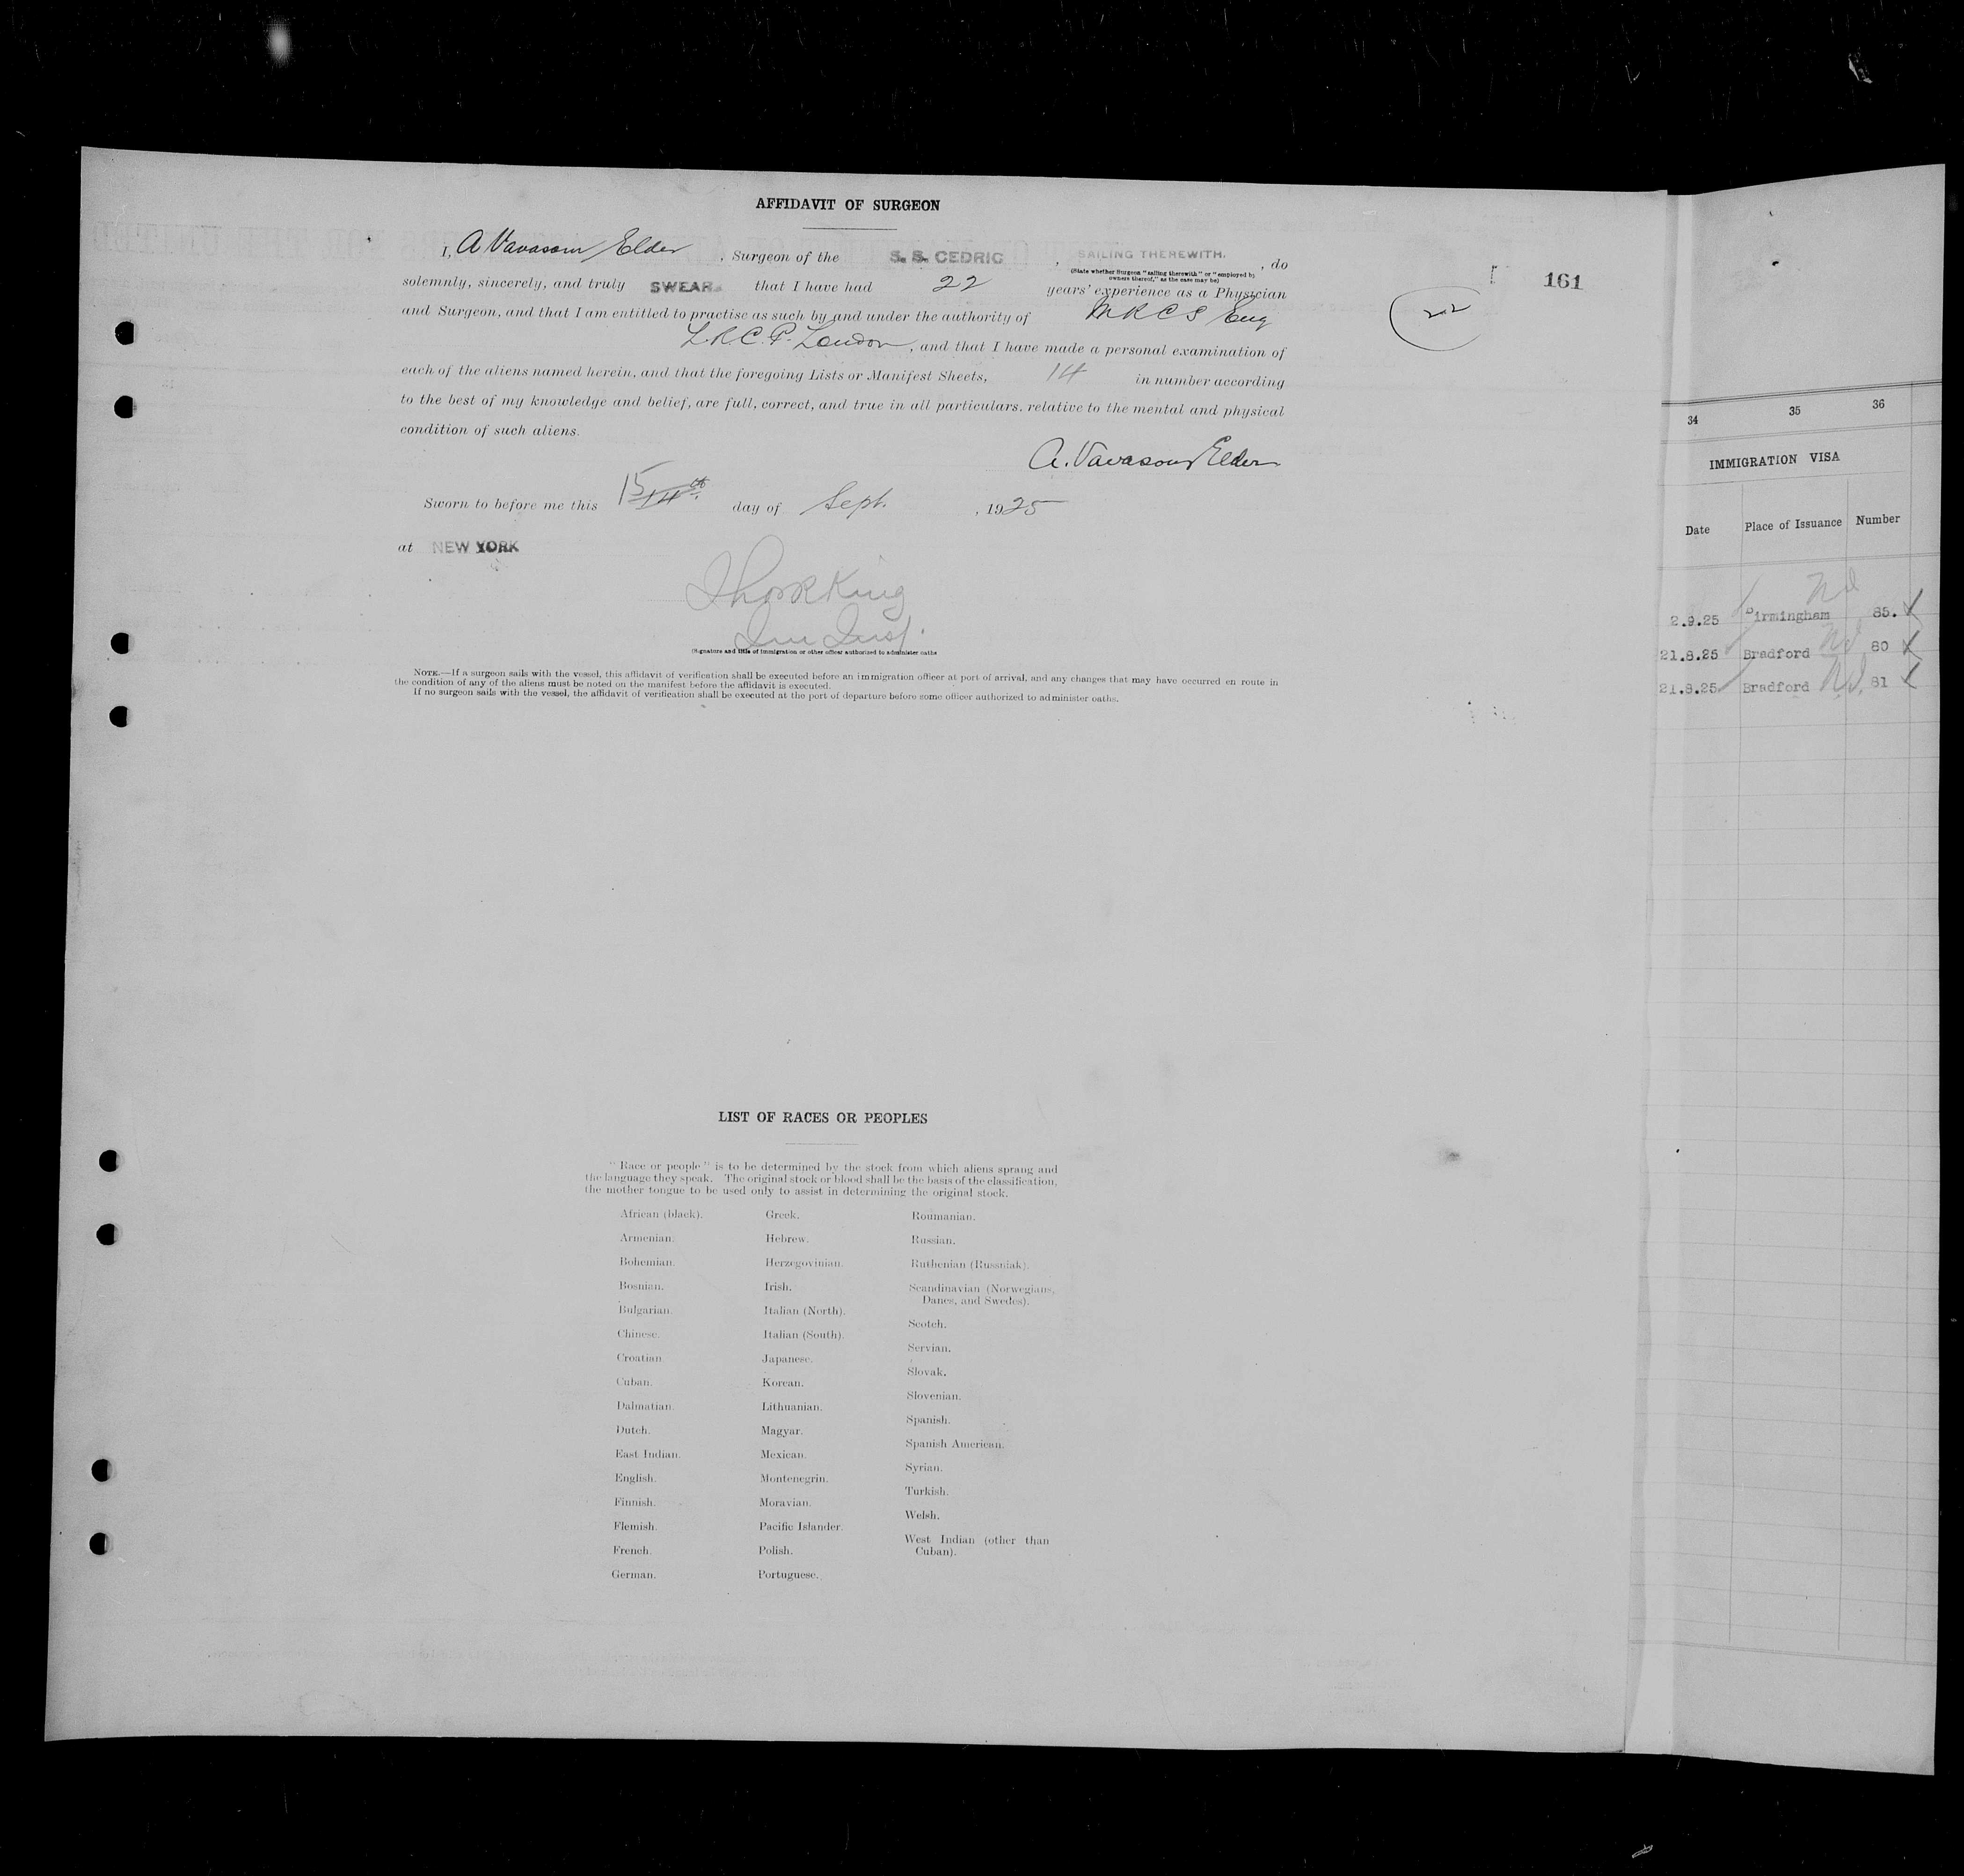 AFFIDAVIT OF SURGEON
I, A Vavasour Elder, Surgeon of the S. S. CEDRIC, SAILING THEREWITH., do
(State whether Surgeon "sailing therewith" or "employed by
owners thereof," as the case may be)
solemnly, sincerely, and truly SWEAR that I have had 22 years' experience as a Physician
and Surgeon, and that I am entitled to practise as such by and under the authority of MRCS Eng
L.R.C.P. London, and that I have made a personal examination of
each of the aliens named herein, and that the foregoing Lists or Manifest Sheets, 14 in number according
to the best of my knowledge and belief, are full, correct, and true in all particulars, relative to the mental and physical
condition of such aliens.
A. Vavasour Elder
Sworn to before me this 15 14th day of Sept. , 1925
at NEW YORK
King
(Signature and title of immigration or other officer authorized to administer oaths
NOTE.—If a surgeon sails with the vessel, this affidavit of verification shall be executed before an immigration officer at port of arrival, and any changes that may have occurred en route in
the condition of any of the aliens must be noted on the manifest before the affidavit is executed.
If no surgeon sails with the vessel, the affidavit of verification shall be executed at the port of departure before some officer authorized to administer oaths.
161
22
LIST OF RACES OR PEOPLES
"Race or people" is to be determined by the stock from which aliens sprang and
the language they speak. The original stock or blood shall be the basis of the classification,
the mother tongue to be used only to assist in determining the original stock.
African (black).
Armenian.
Bohemian.
Bosnian.
Bulgarian.
Chinese.
Croatian.
Cuban.
Dalmatian.
Dutch.
East Indian.
English.
Finnish.
Flemish.
French.
German.
Greek.
Hebrew.
Herzegovinian.
Irish.
Italian (North).
Italian (South).
Japanese.
Korean.
Lithuanian.
Magyar.
Mexican.
Montenegrin.
Moravian.
Pacific Islander.
Polish.
Portuguese.
Roumanian.
Russian.
Ruthenian (Russniak).
Scandinavian (Norwegians,
Danes, and Swedes).
Scotch.
Servian.
Slovak.
Slovenian.
Spanish.
Spanish American.
Syrian.
Turkish.
Welsh.
West Indian (other than
Cuban).
34 35 36
IMMIGRATION VISA
Date Place of Issuance Number
2.9.25 Birmingham 85.
21.8.25 Bradford 80
21.8.25 Bradford 81